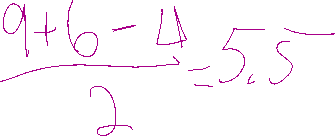 9+6-4
2
=5.5